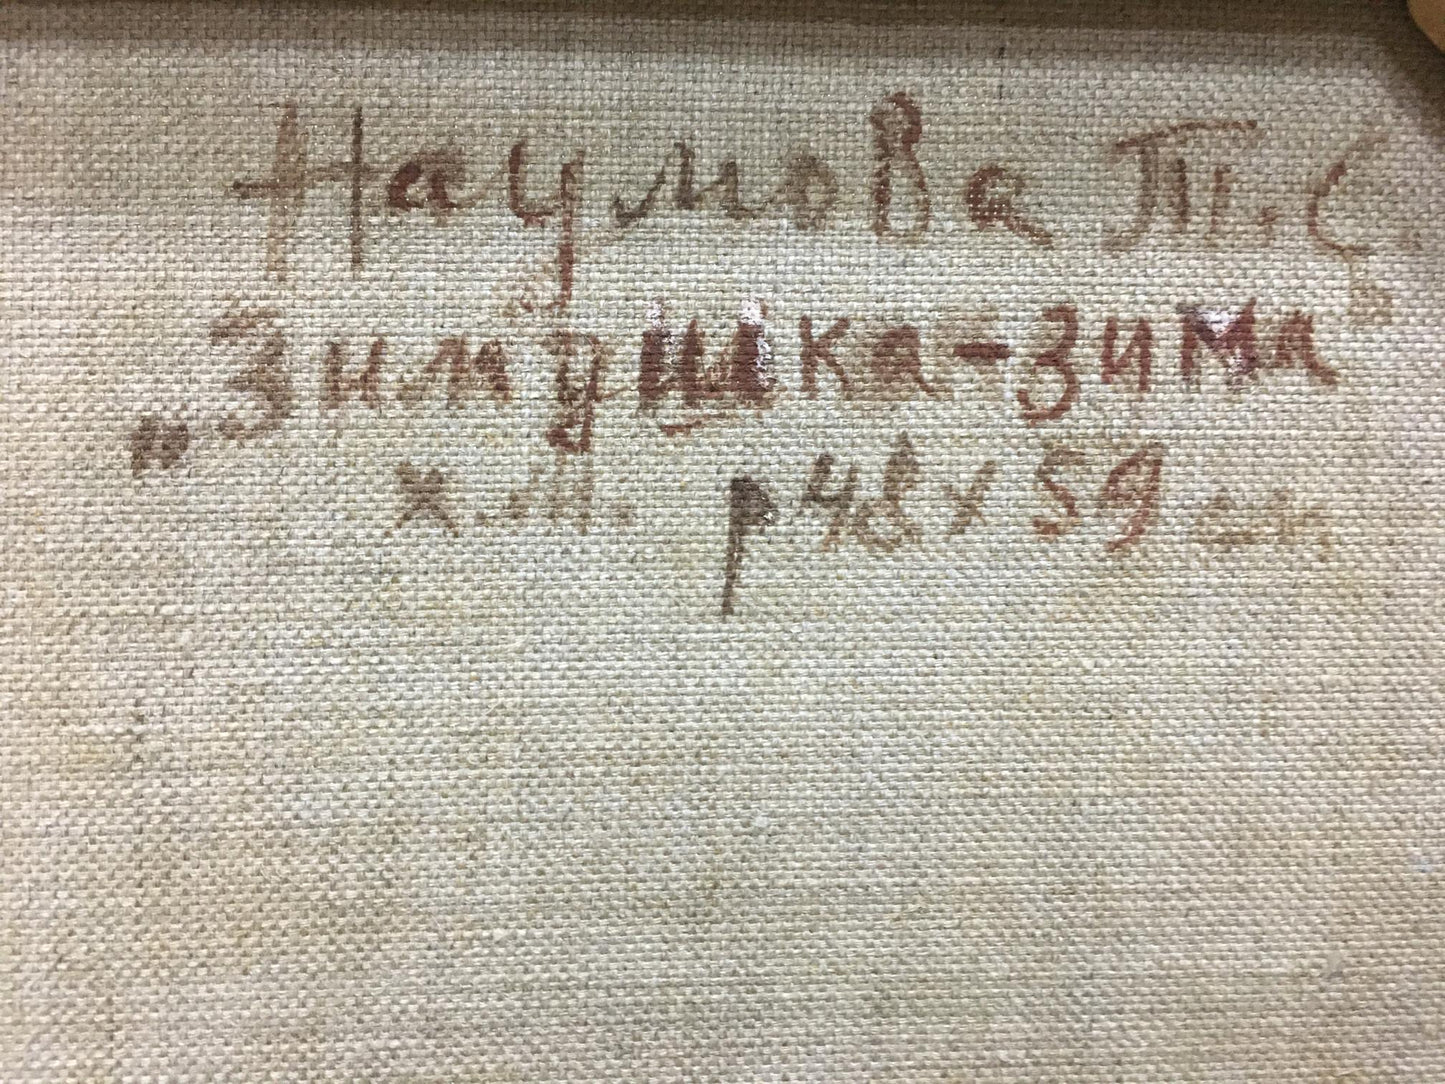 Наумова Т. С.
„Зимушка-зима
х.м. р 48х59 см,